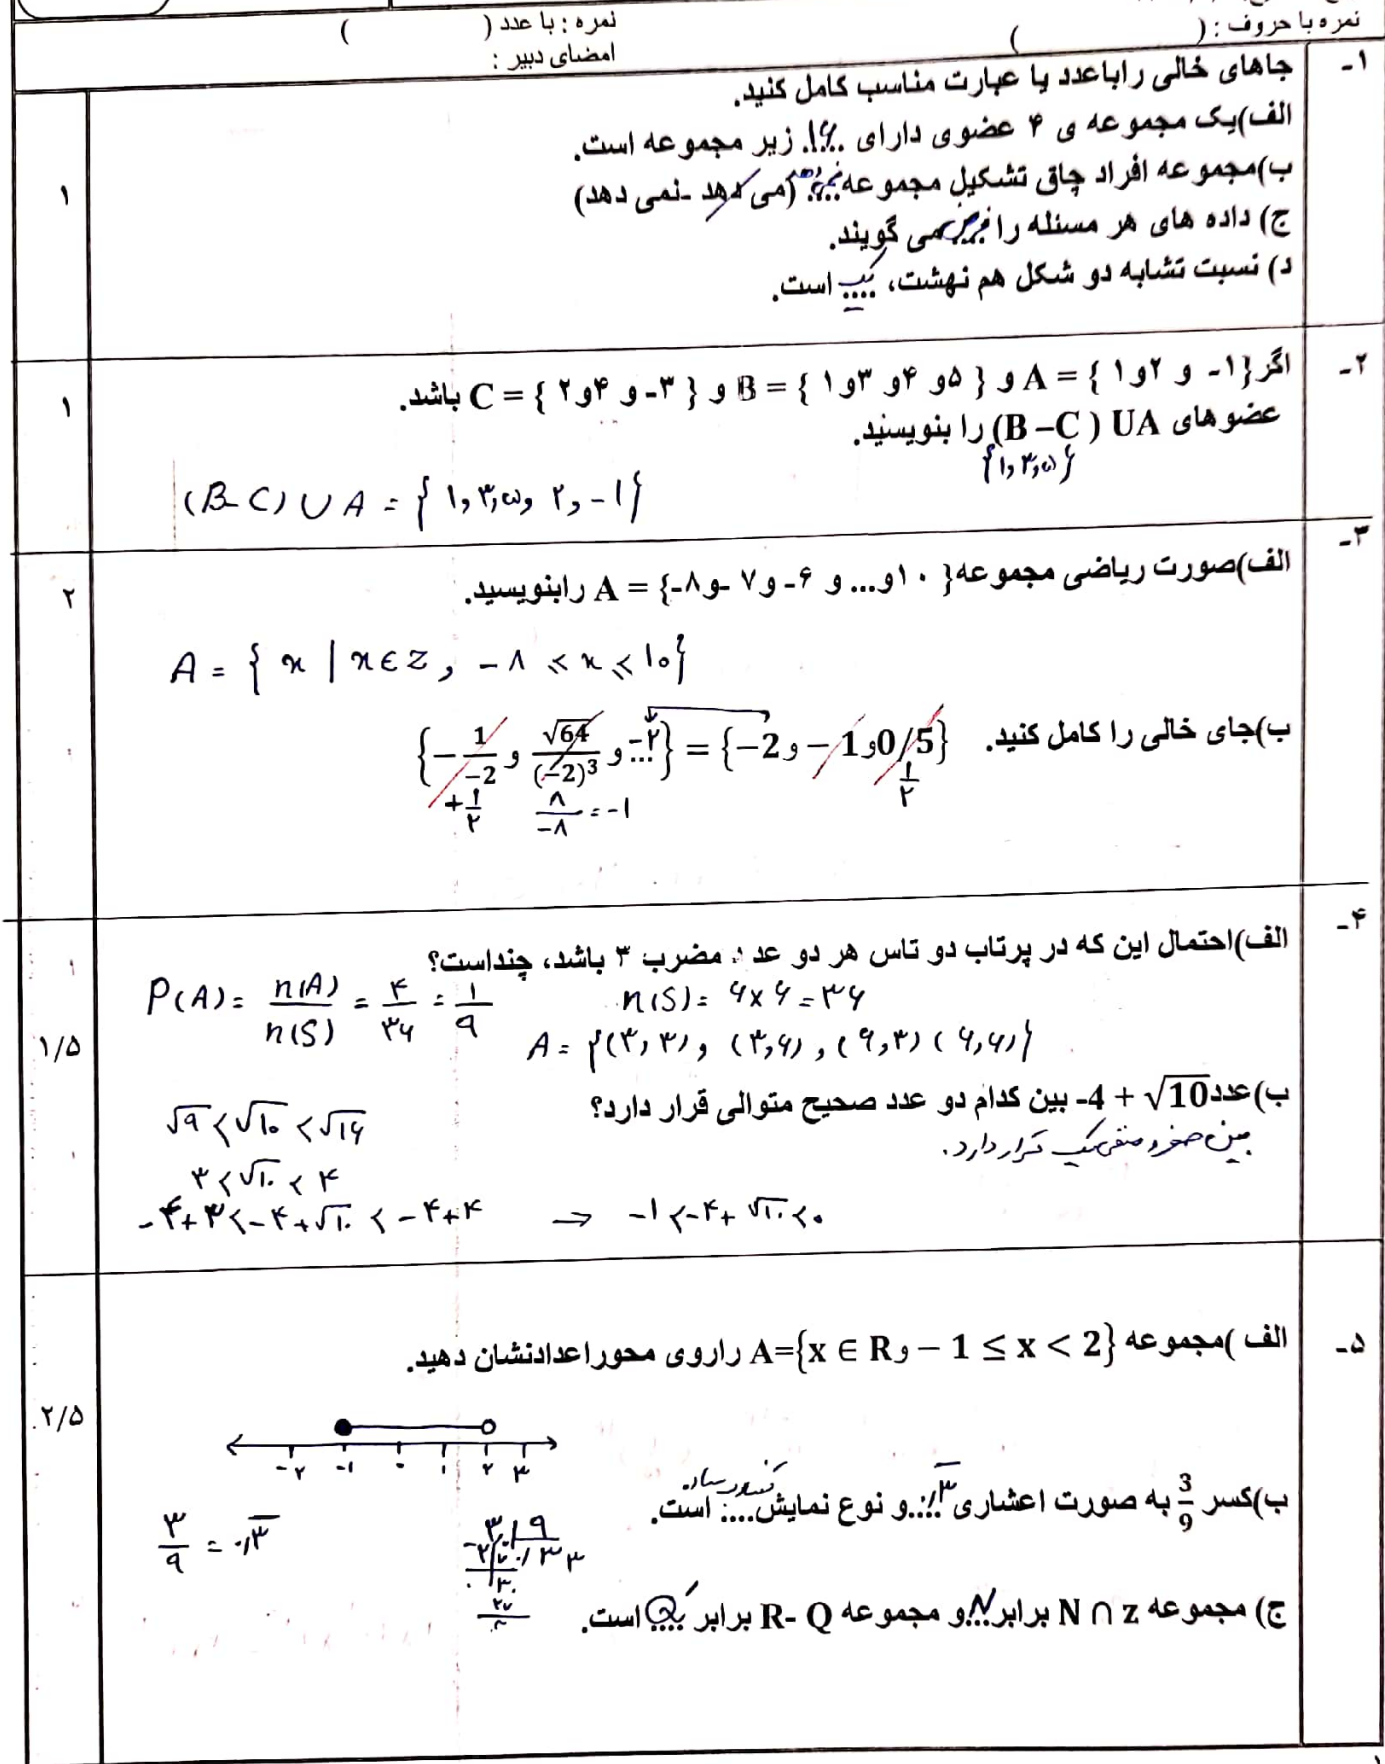 نمره با حروف : ( )
نمره : با عدد ( )
امضای دبیر :
۱- جاهای خالی را باعدد یا عبارت مناسب کامل کنید.
الف)یک مجموعه ی ۴ عضوی دارای ..۱۶.. زیر مجموعه است.
ب)مجموعه افراد چاق تشکیل مجموعه نمی دهد (می دهد -نمی دهد)
ج) داده های هر مسئله را فرض می گویند.
د) نسبت تشابه دو شکل هم نهشت، یک است.
۱
۲- اگر {۱- و ۲و۱ } = A و { ۵و ۴و ۳و۱ } = B و { ۳- و ۴و۲ } = C باشد.
عضوهای (B – C) UA را بنویسنید.
{۱,۳,۵}
(B-C) ∪ A = { ۱,۳,۵, ۲, -۱}
۱
۳- الف)صورت ریاضی مجموعه{ ۱۰و... و ۶- و۷ -و۸-} = A رابنویسید.
A = { x | x∈z , -۸ ⩽ x ⩽ ۱۰}
ب)جای خالی را کامل کنید. {-1/-2 و √64/(-2)³ و -۲...} = {-2 و -1 و 0/5}
+۱/۲ ۸/-۸ = -۱ ۱/۲
۲
۴- الف)احتمال این که در پرتاب دو تاس هر دو عدد مضرب ۳ باشد، چنداست؟
P(A) = n(A)/n(S) = ۴/۳۶ = ۱/۹ n(S) = ۶×۶ = ۳۶
A = {(۳,۳), (۳,۶), (۶,۳) (۶,۶)}
ب)عدد -4 + √10 بین کدام دو عدد صحیح متوالی قرار دارد؟
بین صفر و منفی یک قرار دارد.
√۹ < √۱۰ < √۱۶
۳ < √۱۰ < ۴
-۴+۳ < -۴+√۱۰ < -۴+۴ ⇒ -۱ < -۴+√۱۰ < ۰
۱/۵
۵- الف )مجموعه A={x ∈ R و – 1 ≤ x < 2} راروی محوراعدادنشان دهید.
-۲ -۱ ۰ ۱ ۲ ۳
ب)کسر 3/9 به صورت اعشاری ۰/۳̅ و نوع نمایش .... است.
۳/۹ = ۰/۳̅
ج) مجموعه N ∩ z برابر N و مجموعه R- Q برابر Q′ است.
۲/۵